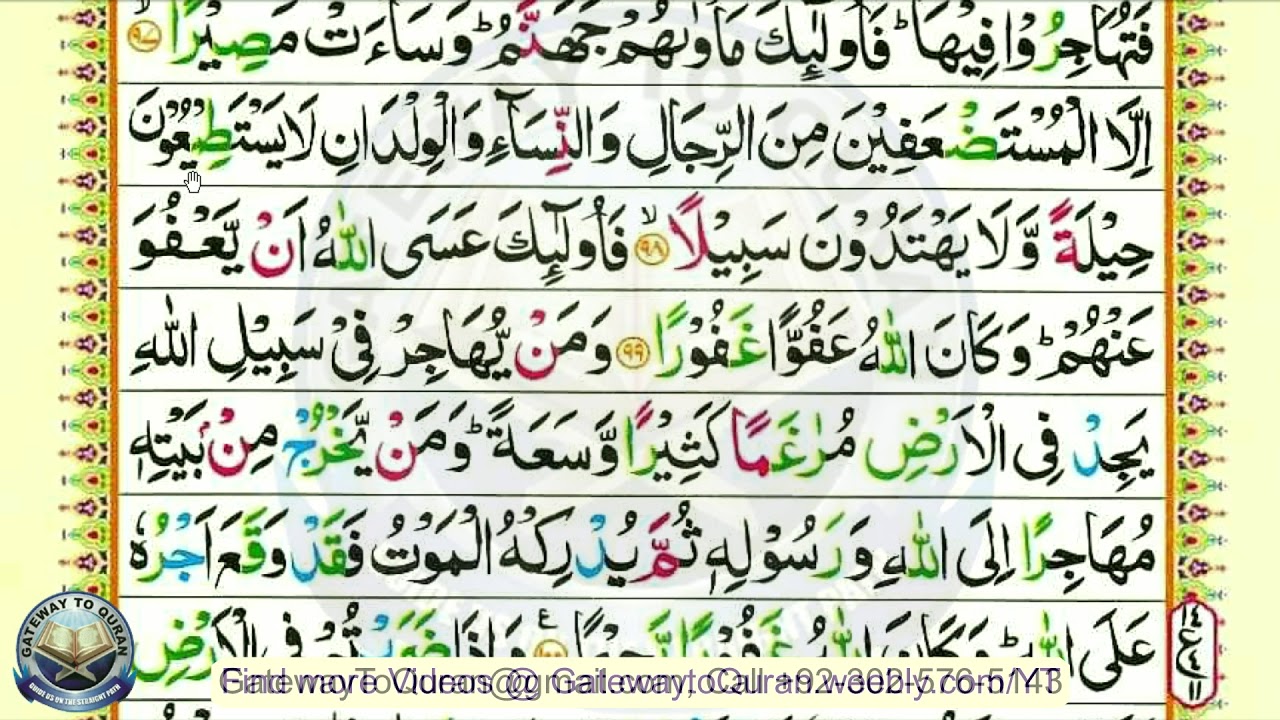 فَتُهَاجِرُوْا فِيْهَا ؕ فَاُولٰٓىِٕكَ مَاْوٰىهُمْ جَهَنَّمُ ؕ وَسَآءَتْ مَصِيْرًا ۙ ﴿۹۷﴾
اِلَّا الْمُسْتَضْعَفِيْنَ مِنَ الرِّجَالِ وَالنِّسَآءِ وَالْوِلْدَانِ لَا يَسْتَطِيْعُوْنَ
حِيْلَةً وَّلَا يَهْتَدُوْنَ سَبِيْلًا ۙ ﴿۹۸﴾ فَاُولٰٓىِٕكَ عَسَى اللّٰهُ اَنْ يَّعْفُوَ
عَنْهُمْ ؕ وَكَانَ اللّٰهُ عَفُوًّا غَفُوْرًا ﴿۹۹﴾ وَمَنْ يُّهَاجِرْ فِيْ سَبِيْلِ اللّٰهِ
يَجِدْ فِى الْاَرْضِ مُرٰغَمًا كَثِيْرًا وَّسَعَةً ؕ وَمَنْ يَّخْرُجْ مِنْۢ بَيْتِهٖ
مُهَاجِرًا اِلَى اللّٰهِ وَرَسُوْلِهٖ ثُمَّ يُدْرِكْهُ الْمَوْتُ فَقَدْ وَقَعَ اَجْرُهٗ
عَلَى اللّٰهِ ؕ وَكَانَ اللّٰهُ غَفُوْرًا رَّحِيْمًا ﴿۱۰۰﴾ وَاِذَا ضَرَبْتُمْ فِى الْاَرْضِ
GATEWAY TO QURAN
GUIDE US ON THE STRAIGHT PATH